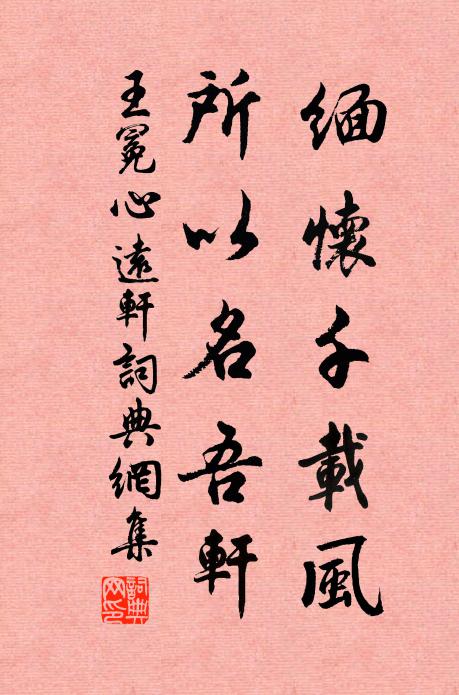 緬懷千載風
所以名吾軒
王冕心遠軒詞典網集
詞典網印